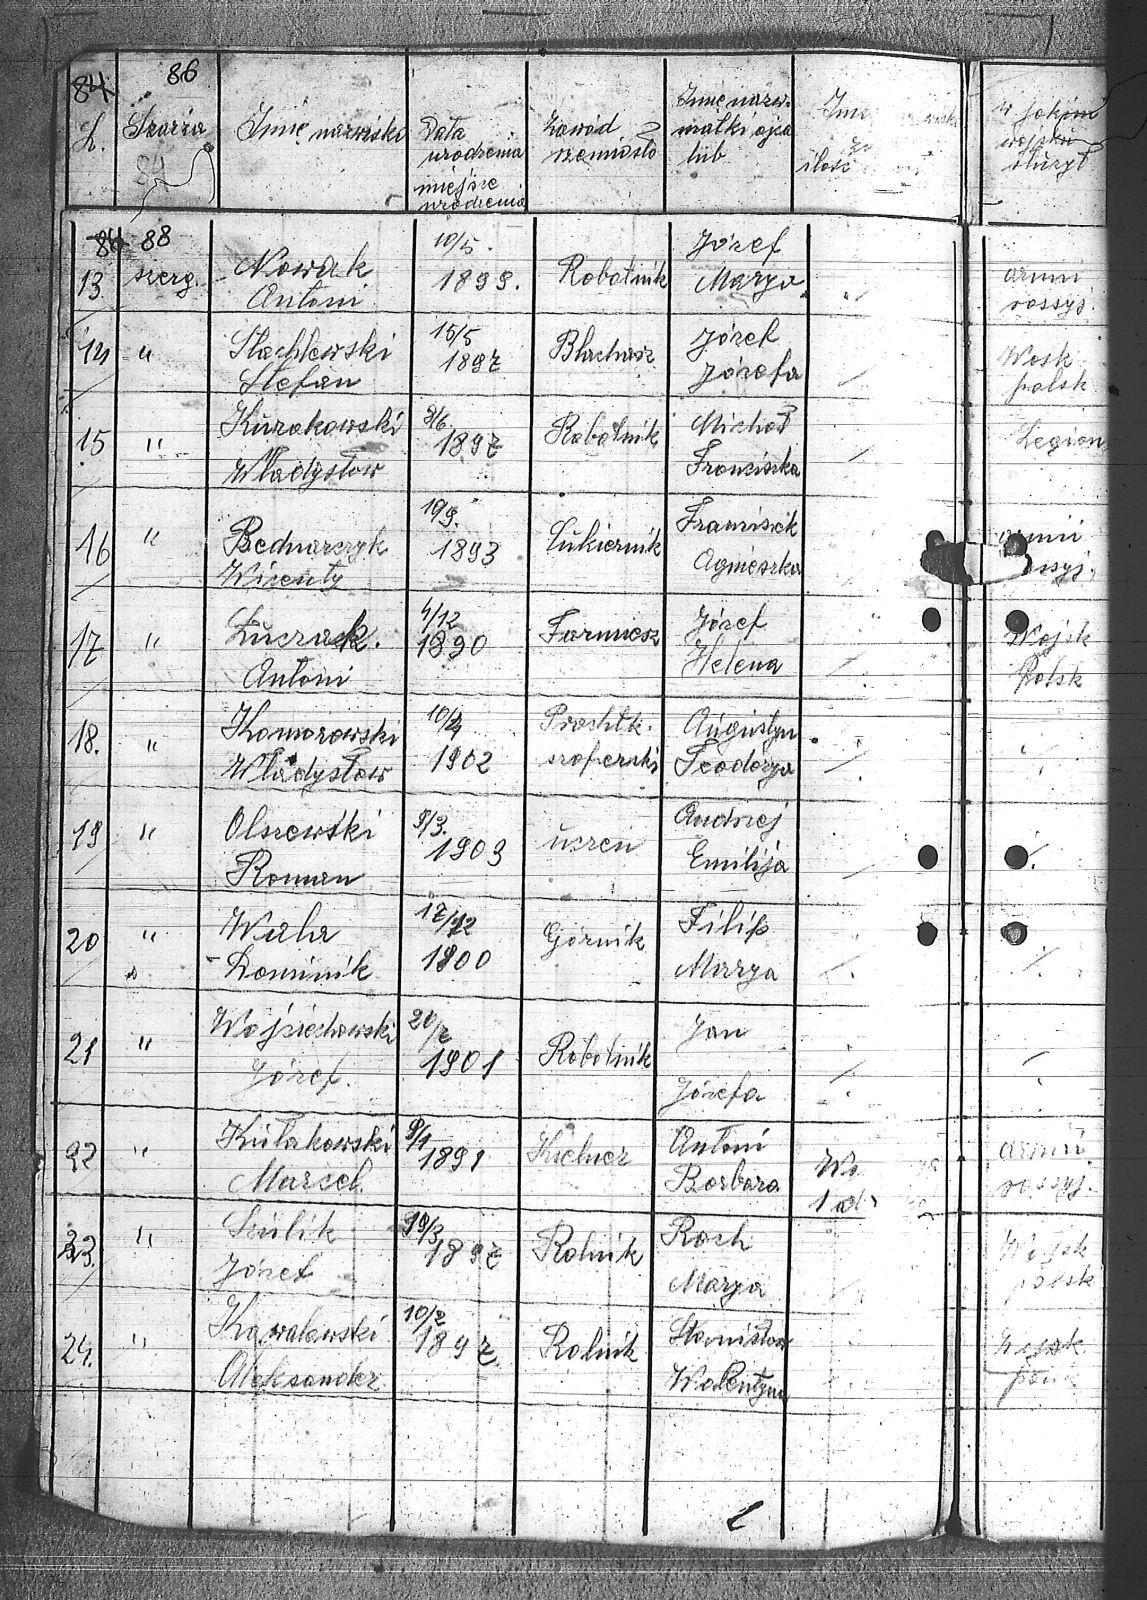 84 86
L. Szarża Imię nazwisko Data urodzenia miejsce urodzenia Zawód rzemiosło Imię nazw. matki ojca lub Imię ilość W jakim wojsku służył
84
84 88
13 szerg. Nowak Antoni 10/5. 1899. Robotnik Józef Marya „ armii rossyj.
14 „ Stachlewski Stefan 15/5 1897 Blacharz Józef Józefa / Wosk polsk
15 „ Kurakowski Władysław 2/6 1897 Robotnik Michał Franciszka / Legion
16 „ Bednarczyk Wicenty 19/9. 1893 Cukiernik Franciszek Agnieszka armii ossyj.
17 „ Łuczack. Antoni 4/12 1890 Farmiesz Józef Helena / Wojsk Polsk
18. „ Komorowski Władysław 10/4 1902 Prachtk. szoferski Augustyn Teodorya / „
19 „ Olszewski Roman 9/3. 1903 uczeń Andrzej Emilija / /.
20 „ Walla Dominik 17/12 1900 Górnik Filip Marya / /.
21 „ Wojciechowski Józef. 20/2 1901 Robotnik Jan Józefa / „
22 „ Kułakowski Marceli 9/1 1891 Kielner Antoni Barbara Wo. 1 d. armii rossyj.
23. „ Szulik Józef 19/3 1897 Rolnik Roch Marya Wojsk polsk
24. „ Kowalewski Aleksander 10/2 1897. Rolnik Stanisław Walentyna Wojsk polsk